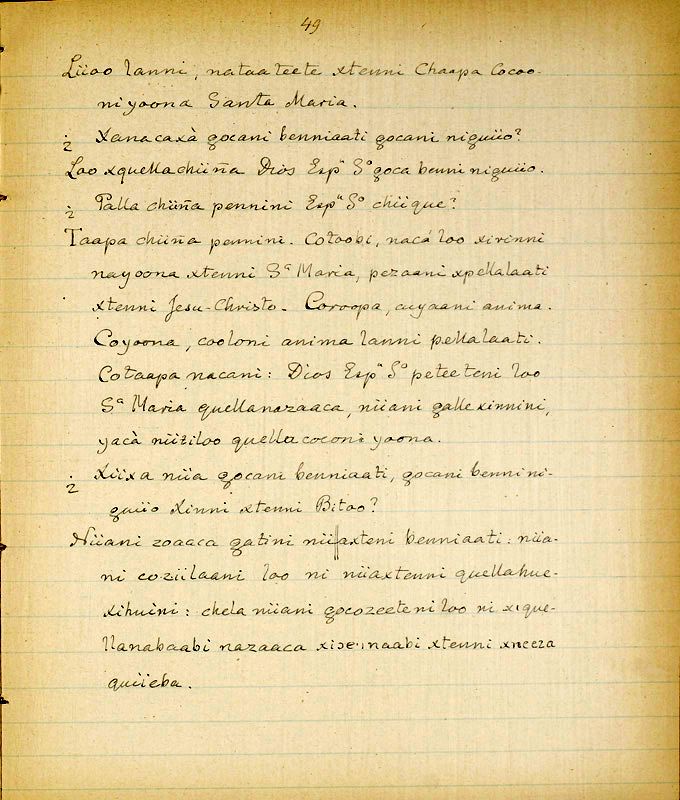 49
Lüoo lanni, nataateete xtenni Chaapa Cocoo-
niyoona Santa Maria.
¿ Xanacaxà gocani benniaati gocani niguiio?
Loo xquellachiiña Dios Espᵘ Sᵒ goca benni niguiio.
¿ Palla chiiña pennini Espᵘ Sᵒ chiique?
Taapa chiiña pennini. Cotoobi, nacá loo xirinni
nayoona xtenni Sᵃ Maria, pezaani xpellalaati
xtenni Jesu-Christo. Coroopa, cuyaani anima.
Coyoona, cooloni anima lanni pellalaati.
Cotaapa nacani: Dios Espᵘ Sᵒ peteeteni loo
Sᵃ Maria quellanazaaca, niiani galle xinnini,
yacà niiziloo quella coconi yoona.
¿ Xiixa niia gocani benniaati, gocani benni ni-
guiio Xinni xtenni Bitoo?
Niiani zoaaca gatini niiaxteni benniaati: niia-
ni coziilaani loo ni niiaxtenni quellahue-
xihuini: chela niiani gocozeeteni loo ni xique-
llanabaabi nazaaca naabi xtenni xneeza
quiieba.